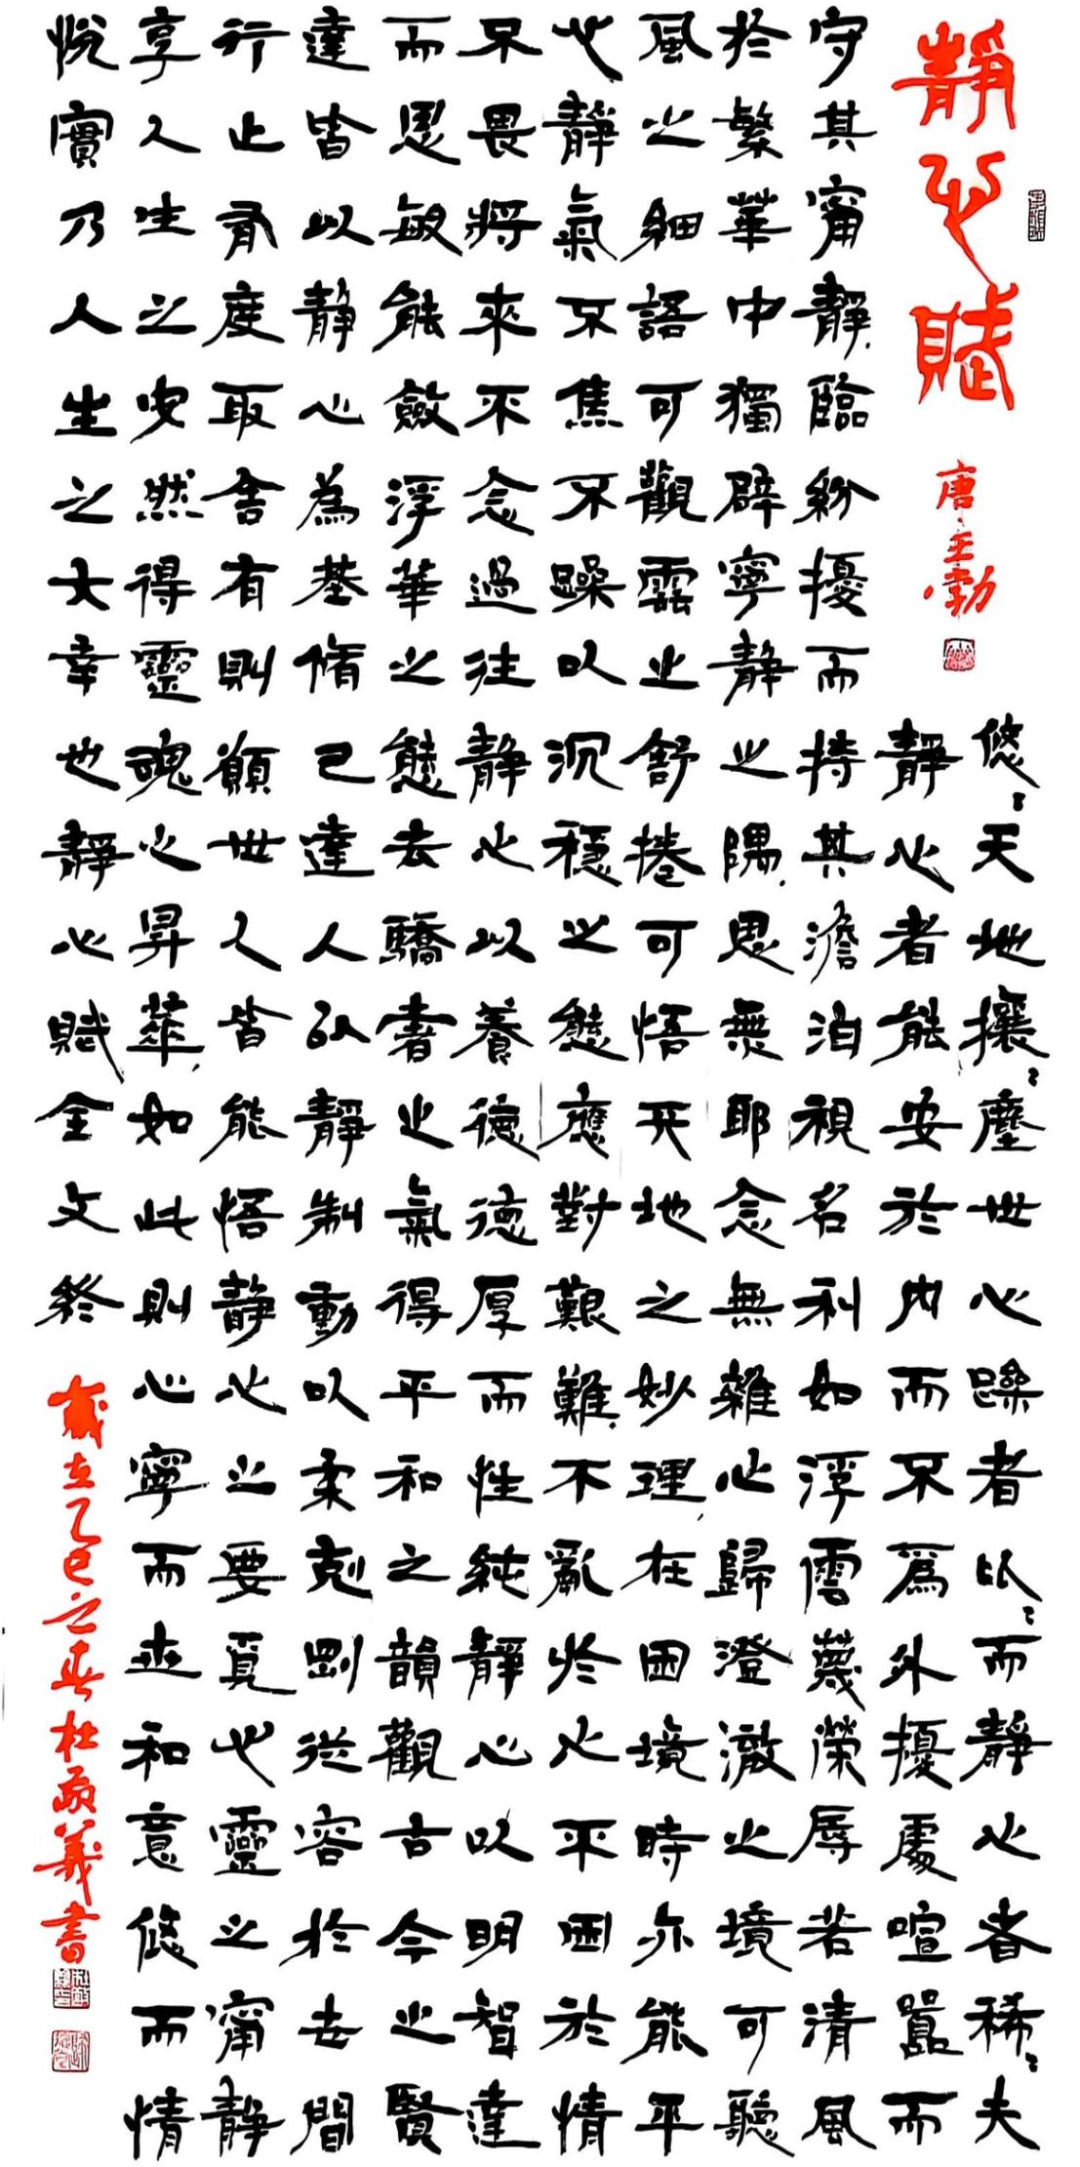 靜心賦
唐王勃
悠〻天地攘〻塵世心躁者比〻而靜心者稀〻夫
靜心者能安於內而不為外擾處喧囂而
守其甯靜臨紛擾而持其澹泊視名利如浮雲蔑榮辱若清風
於繁華中獨辟寧靜之隅思無耶念無雜心歸澄澈之境可聽
風之細語可觀雲之舒捲可悟天地之妙理在困境時亦能平
心靜氣不焦不躁以沉穩之態應對艱難不亂於心不困於情
不畏將來不念過往靜心以養德德厚而性純靜心以明智達
而思敏能斂浮華之態去驕奢之氣得平和之韻觀古今之賢
達皆以靜心為基脩己達人以靜制動以柔剋剛從容於世間
行止有度取舍有則願世人皆能悟靜心之要覓心靈之甯靜
享人生之安然得靈魂之昇華如此則心寧而和意悠而情
悅實乃人生之大幸也靜心賦全文終
歲在乙巳之春杜義書